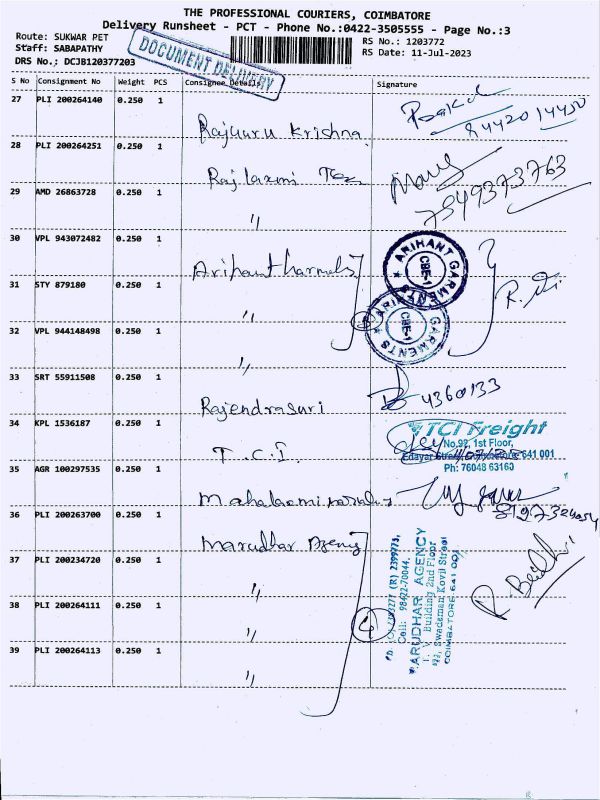 THE PROFESSIONAL COURIERS, COIMBATORE
Delivery Runsheet - PCT - Phone No.:0422-3505555 - Page No.:3
Route: SUKWAR PET
RS No.: 1203772
Staff: SABAPATHY
RS Date: 11-Jul-2023
DRS No.: DCJB120377203
DOCUMENT DELIVERY
S No Consignment No Weight PCS Consignee Details Signature
27 PLI 200264140 0.250 1
84420 14450
Krishna
28 PLI 200264251 0.250 1
Raj laxmi Tex
7549373763
29 AMD 26863728 0.250 1
"
30 VPL 943072482 0.250 1
ARIHANT GARMENTS
CBE-1
31 STY 879180 0.250 1
"
ARIHANT GARMENTS
CBE-1
32 VPL 944148498 0.250 1
"
33 SRT 55911508 0.250 1
4360133
Rajendrasuri
34 KPL 1536187 0.250 1
TCI Freight
No.92, 1st Floor,
641 001
Ph: 76048 63160
T.C.I.
35 AGR 100297535 0.250 1
36 PLI 200263700 0.250 1
Marudhar
37 PLI 200234720 0.250 1
"
38 PLI 200264111 0.250 1
"
4
39 PLI 200264113 0.250 1
"
(R) 2399773,
Cell: 98422-70044.
MARUDHAR AGENCY
T. V. Building 2nd Floor
Swadesman Kovil Street
COIMBATORE-641 001